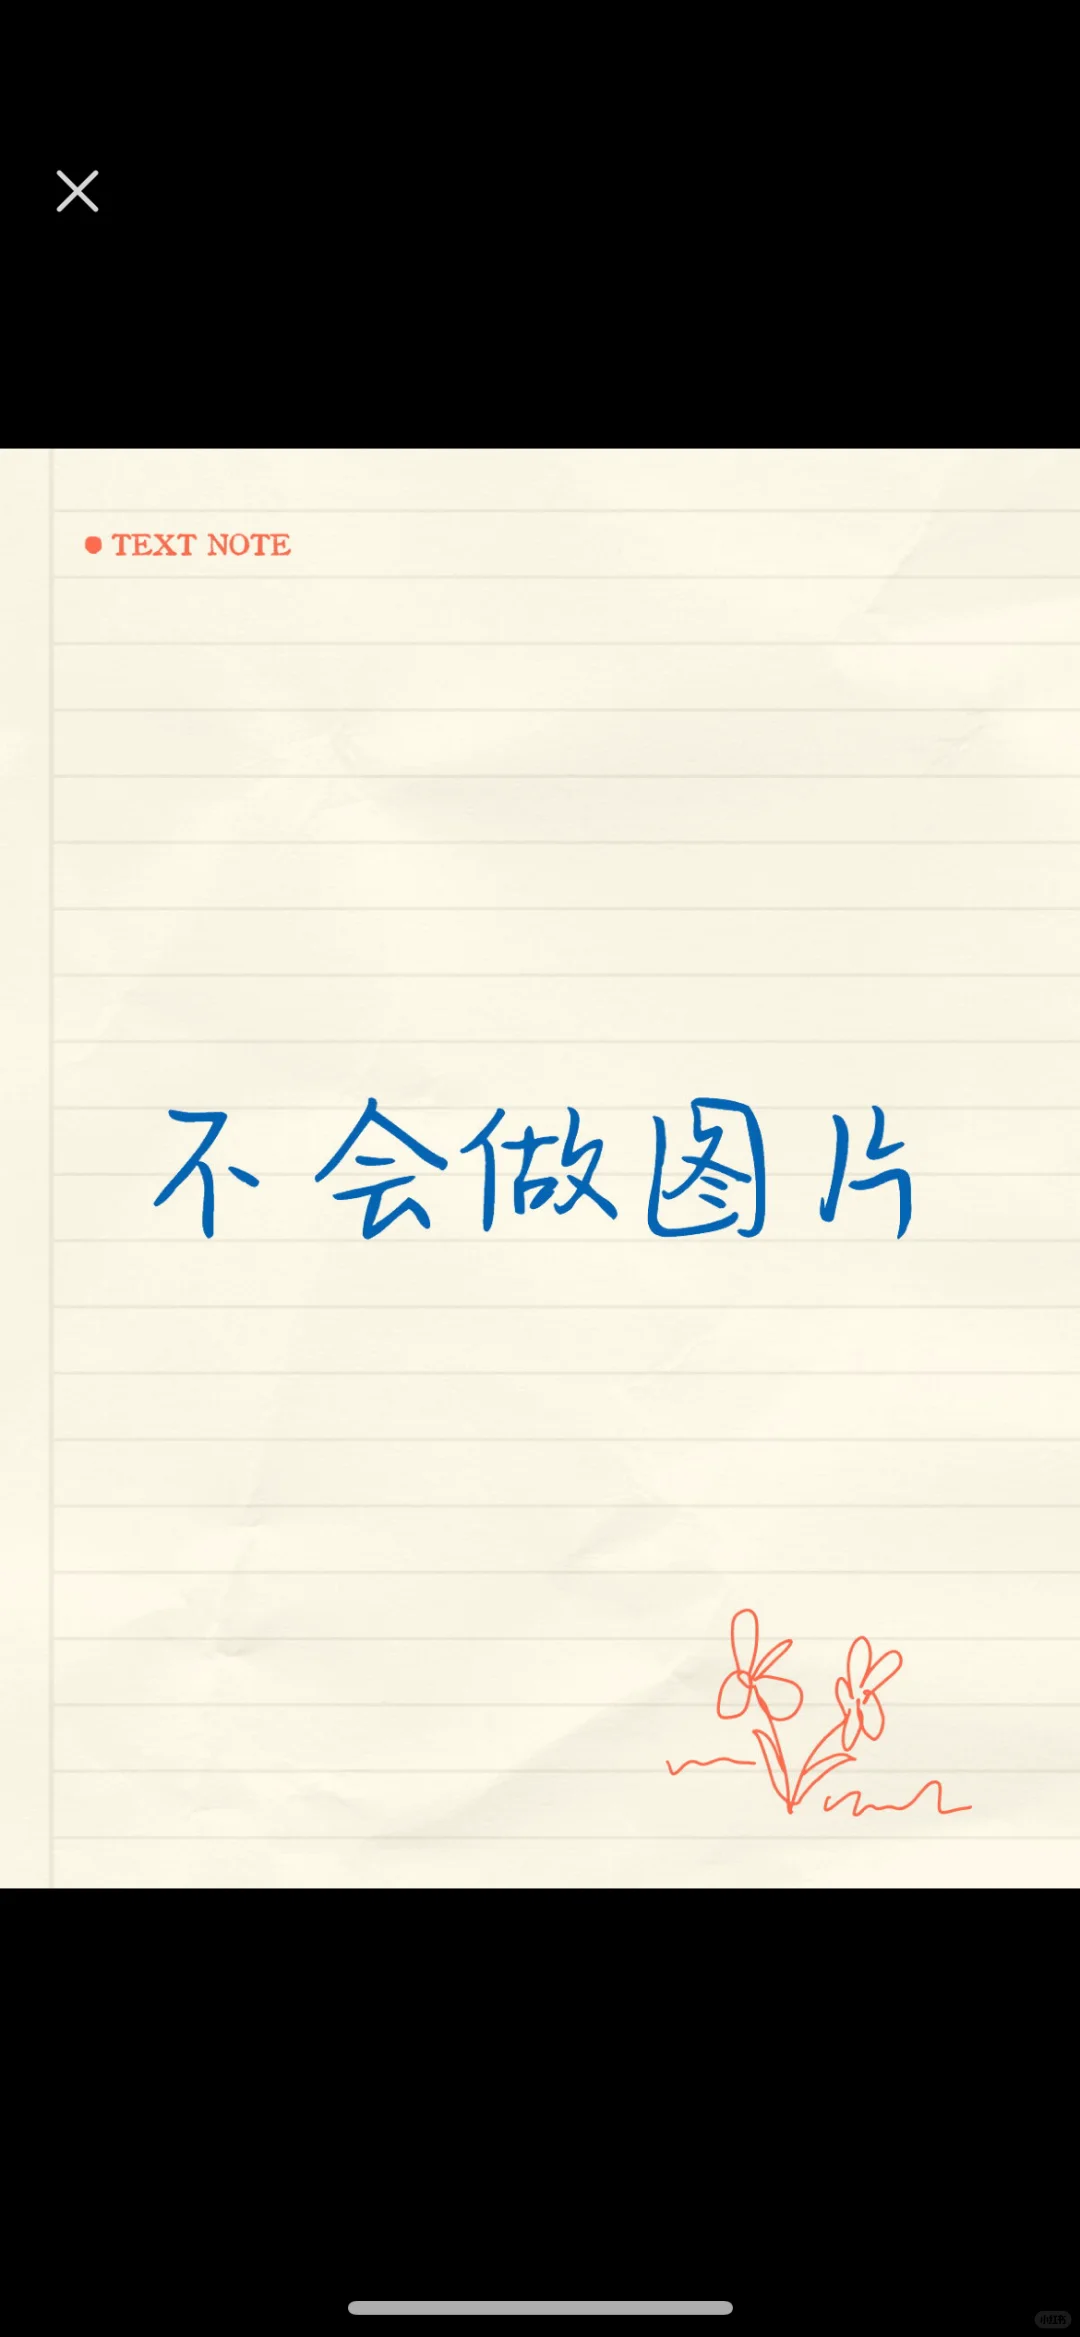 TEXT NOTE
不会做图片
小红书